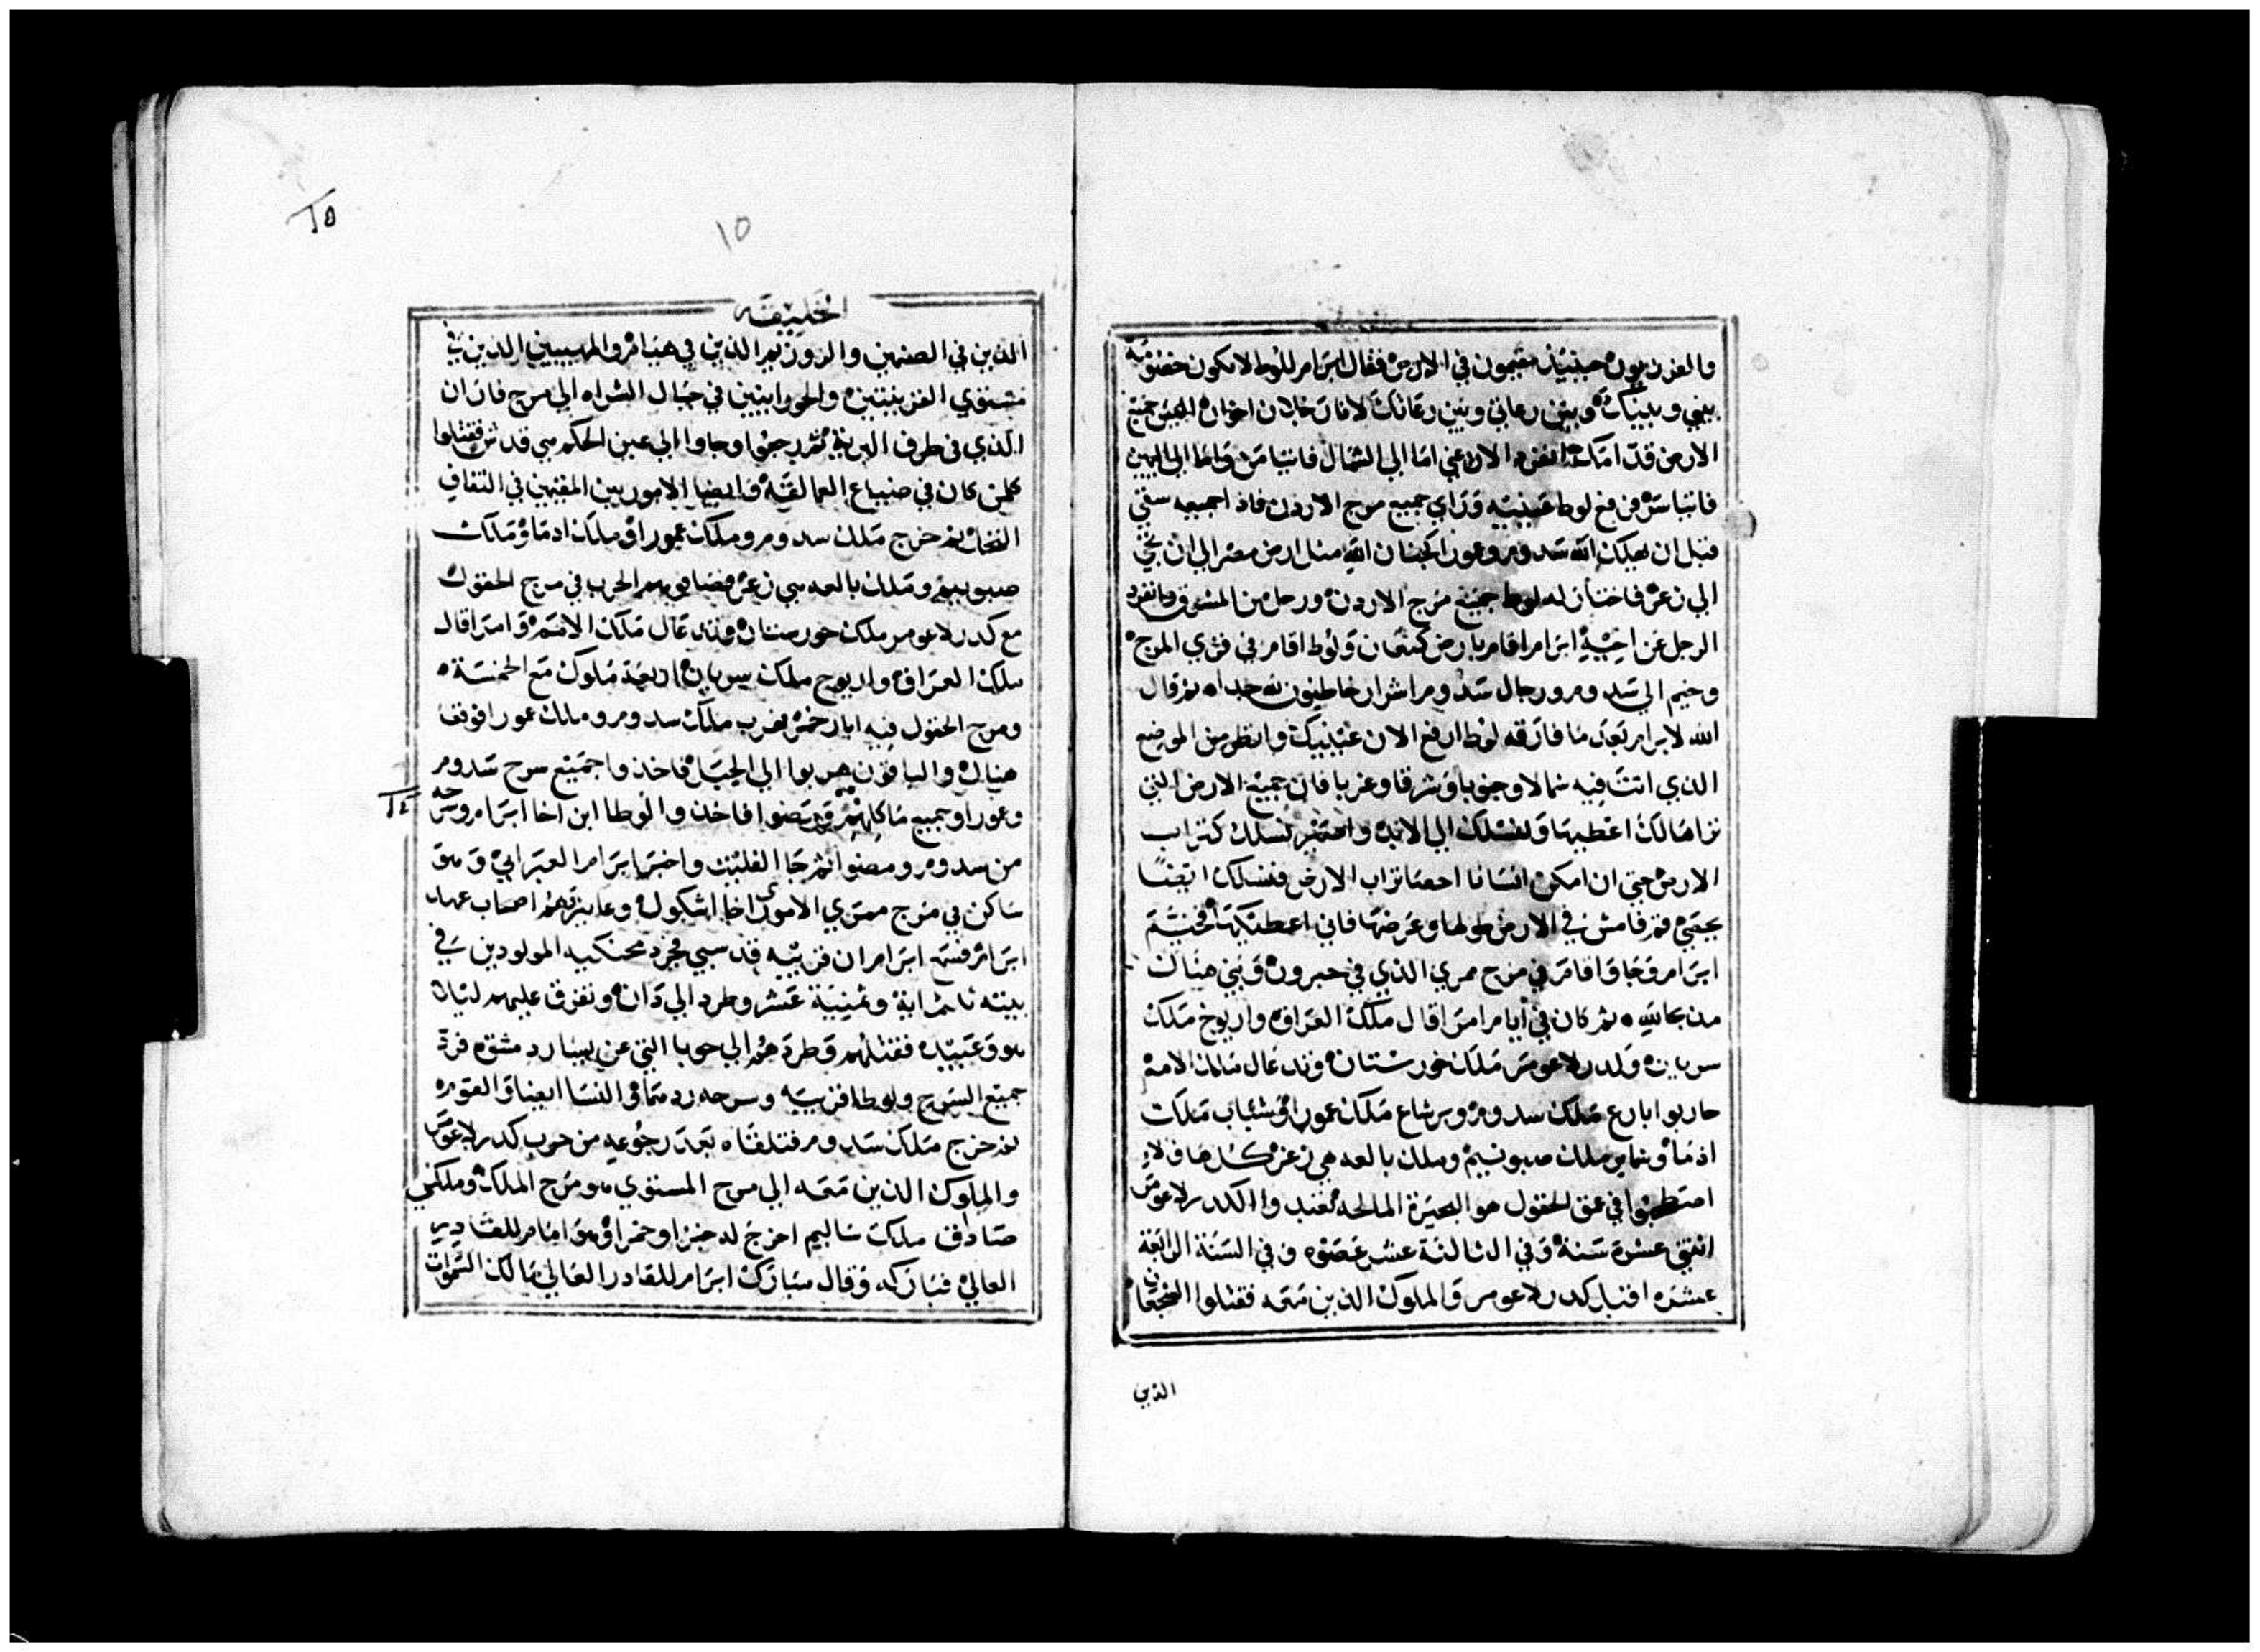 والفرزيون حينيذ مقيمون في الارض فقال ابرام للوط لا تكون خصومه
بيني وبينك وبين رعاتي وبين رعاتك لاننا رجلان اخوان اليس جميع
الارض قدامك انفرد الان عني اما الى الشمال فاتيامن واما الى اليمين
فاتياسر فرفع لوط عينيه وراي جميع مرج الاردن فاذا جميعه سقي
قبل ان يهلك الله سدوم وعمورا كجنان الله مثل ارض مصر الي ان تجي
الي زغر فاختار له لوط جميع مرج الاردن ورحل من المشرق وانفرد
الرجل عن اخيه ابرام اقام بارض كنعان ولوط اقام في قري المرج
وخيم الي سدوم ورجال سدوم اشرار خاطيون لله جدا ثم قال
الله لابرام بعد ما فارقه لوط ارفع الان عينيك وانظر من الموضع
الذي انت فيه شمالا وجنوبا وشرقا وغربا فان جميع الارض التي
تراها لك اعطيها ولنسلك الي الابد واصير نسلك كتراب
الارض حتى ان امكن انسانا احصا تراب الارض فنسلك ايضا
يحصي قم فامش في الارض طولها وعرضها فاني اعطيكها فخيم
ابرام وجا واقام في مرج ممري الذي في حبرون وبني هناك
مذبحا لله ثم كان في ايام امراقال ملك العراق واريوخ ملك
سريان وكدرلاعومر ملك خورستان وتدعال ملك الامم
حاربوا بارع ملك سدوم وبرشاع ملك عمورا وشناب ملك
ادما وشماير ملك صبونيم وملك بالعه هي زغر كل هاولاء
اصطحبوا في عمق الحقول هو البحيرة المالحه تعبدوا لكدرلاعومر
اثنتي عشرة سنة وفي الثالثة عشر عصوه وفي السنة الرابعة
عشره اقبل كدرلاعومر والملوك الذين معه فقتلوا الشجعان
الذين
١٥
١٥
الخليقه
الذين في الصنمين والدون بهم الذين في هبام والمهيبين الذين في
مستوي القريتين والحورانيين في جبال الشراه الي مرج فاران
الذي في طرف البرية ثم رجعوا وجاوا الي عين الحكم هي قدش فقتلوا
كلمن كان في ضياع العمالقة وايضا الاموريين المقيمين في
النخل ثم خرج ملك سدوم وملك عمورا وملك ادما وملك
صبوييم وملك بالعه هي زغر فصافوهم الحرب في مرج الحقول
مع كدرلاعومر ملك خورستان وتدعال ملك الامم وامراقال
ملك العراق واريوح ملك سريان اربعة ملوك مع الخمسة
ومرج الحقول فيه ابار خمر فهرب ملك سدوم وملك عمورا فوقعا
هناك والباقون هربوا الي الجبل فاخذوا جميع سرح سدوم
وعمورا وجميع ماكلهم ومضوا فاخذوا لوطا ابن اخا ابرام وسرحه
١٤
من سدوم ومضوا ثم جا الفليت واخبر ابرام العبراني وهو
ساكن في مرج ممري الاموري اخا اشكول وعابر هم اصحاب عهد
ابرام فسمع ابرام ان قريبه قد سبي فجرد محنكيه المولودين في
بيته ثلثماية وثمنية عشر وطرد الي دان وتفرق عليهم ليلا
هو وعبيده فقتلهم وطردهم الي حوبا التي عن يسار دمشق فرد
جميع السرح ولوطا قريبه وسرحه ردهما والنسا ايضا والقوم
ثم خرج ملك سدوم فتلقاه بعد رجوعه من حرب كدرلاعومر
والملوك الذين معه الي مرج المستوي هو مرج الملك وملكي
صادق ملك ساليم اخرج له خبزا وخمرا وهو امام للقادر
العالي فباركه وقال مبارك ابرام للقادر العالي مالك السموات